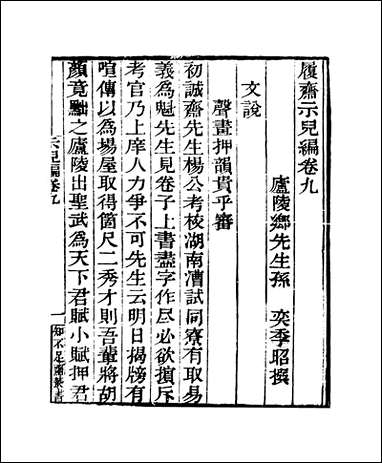 履齋示兒編卷九
廬陵鄉先生孫 奕季昭撰
文說
聲畫押韻貴乎審
初誠齋先生楊公考校湖南漕試同寮有取易
義為魁先生見卷子上書盡字作尽必欲擯斥
考官乃上庠人力爭不可先生云明日揭牓有
喧傳以為場屋取得箇尺二秀才則吾輩將胡
顏竟黜之廬陵出聖武為天下君賦小賦押君
示兒編卷九
一
知不足齋叢書